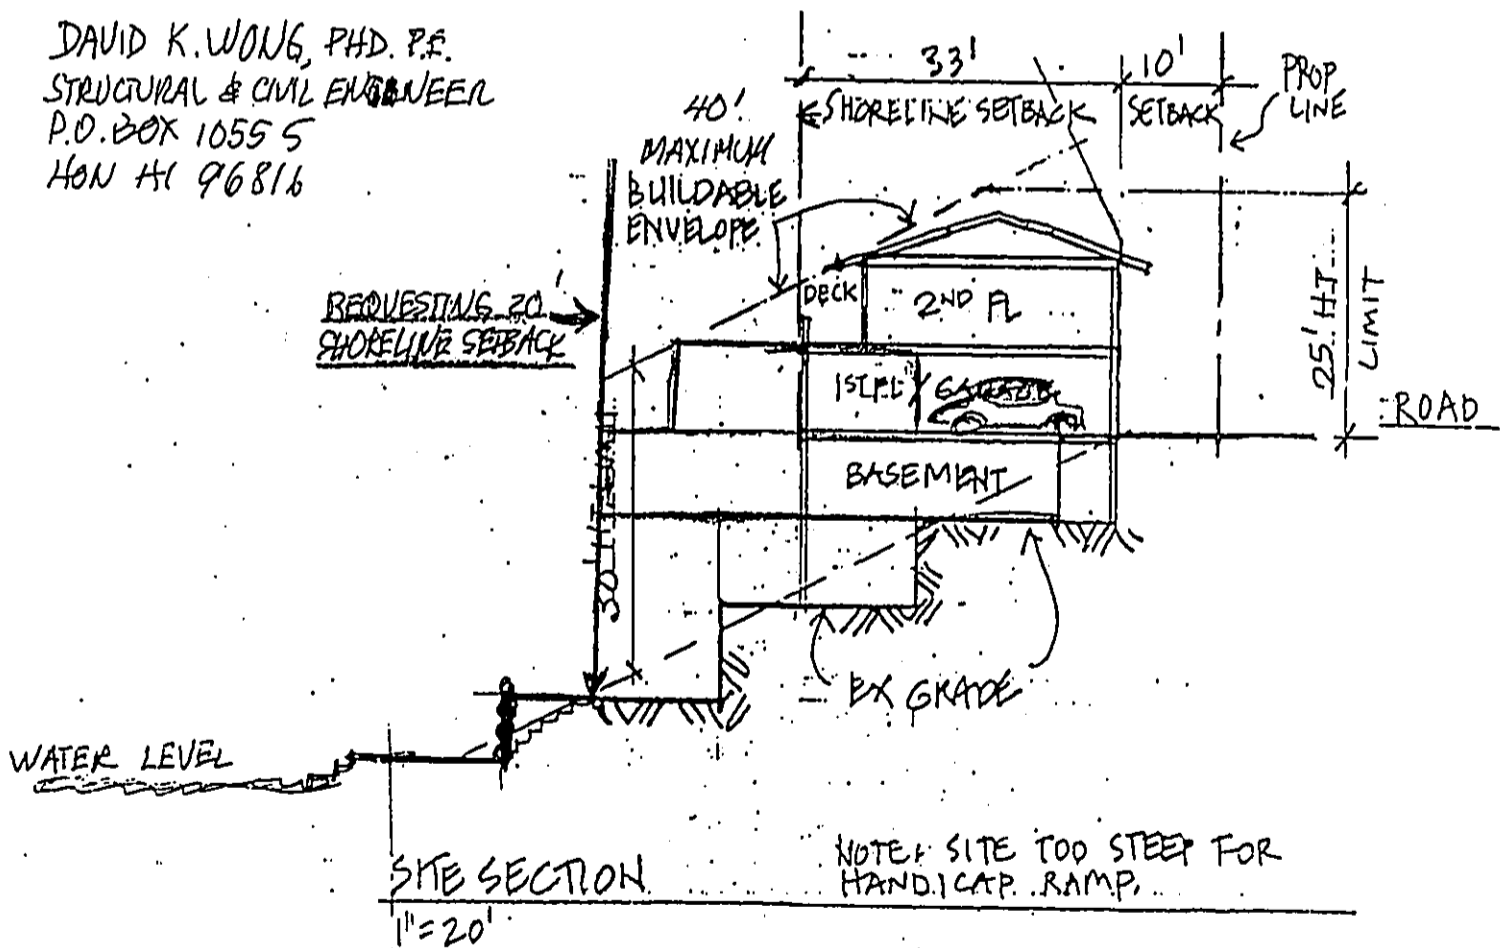 DAVID K. WONG, PHD. P.E.
STRUCTURAL & CIVIL ENGINEER
P.O. BOX 10555
HON HI 96816
33'
10'
PROP
LINE
40'
SHORELINE SETBACK
SETBACK
MAXIMUM
BUILDABLE
ENVELOPE
REQUESTING 20'
SHORELINE SETBACK
DECK
2ND FL
25' HT
LIMIT
1ST FL
ROAD
BASEMENT
30'
EX GRADE
WATER LEVEL
SITE SECTION
1"=20'
NOTE: SITE TOO STEEP FOR
HANDICAP RAMP.